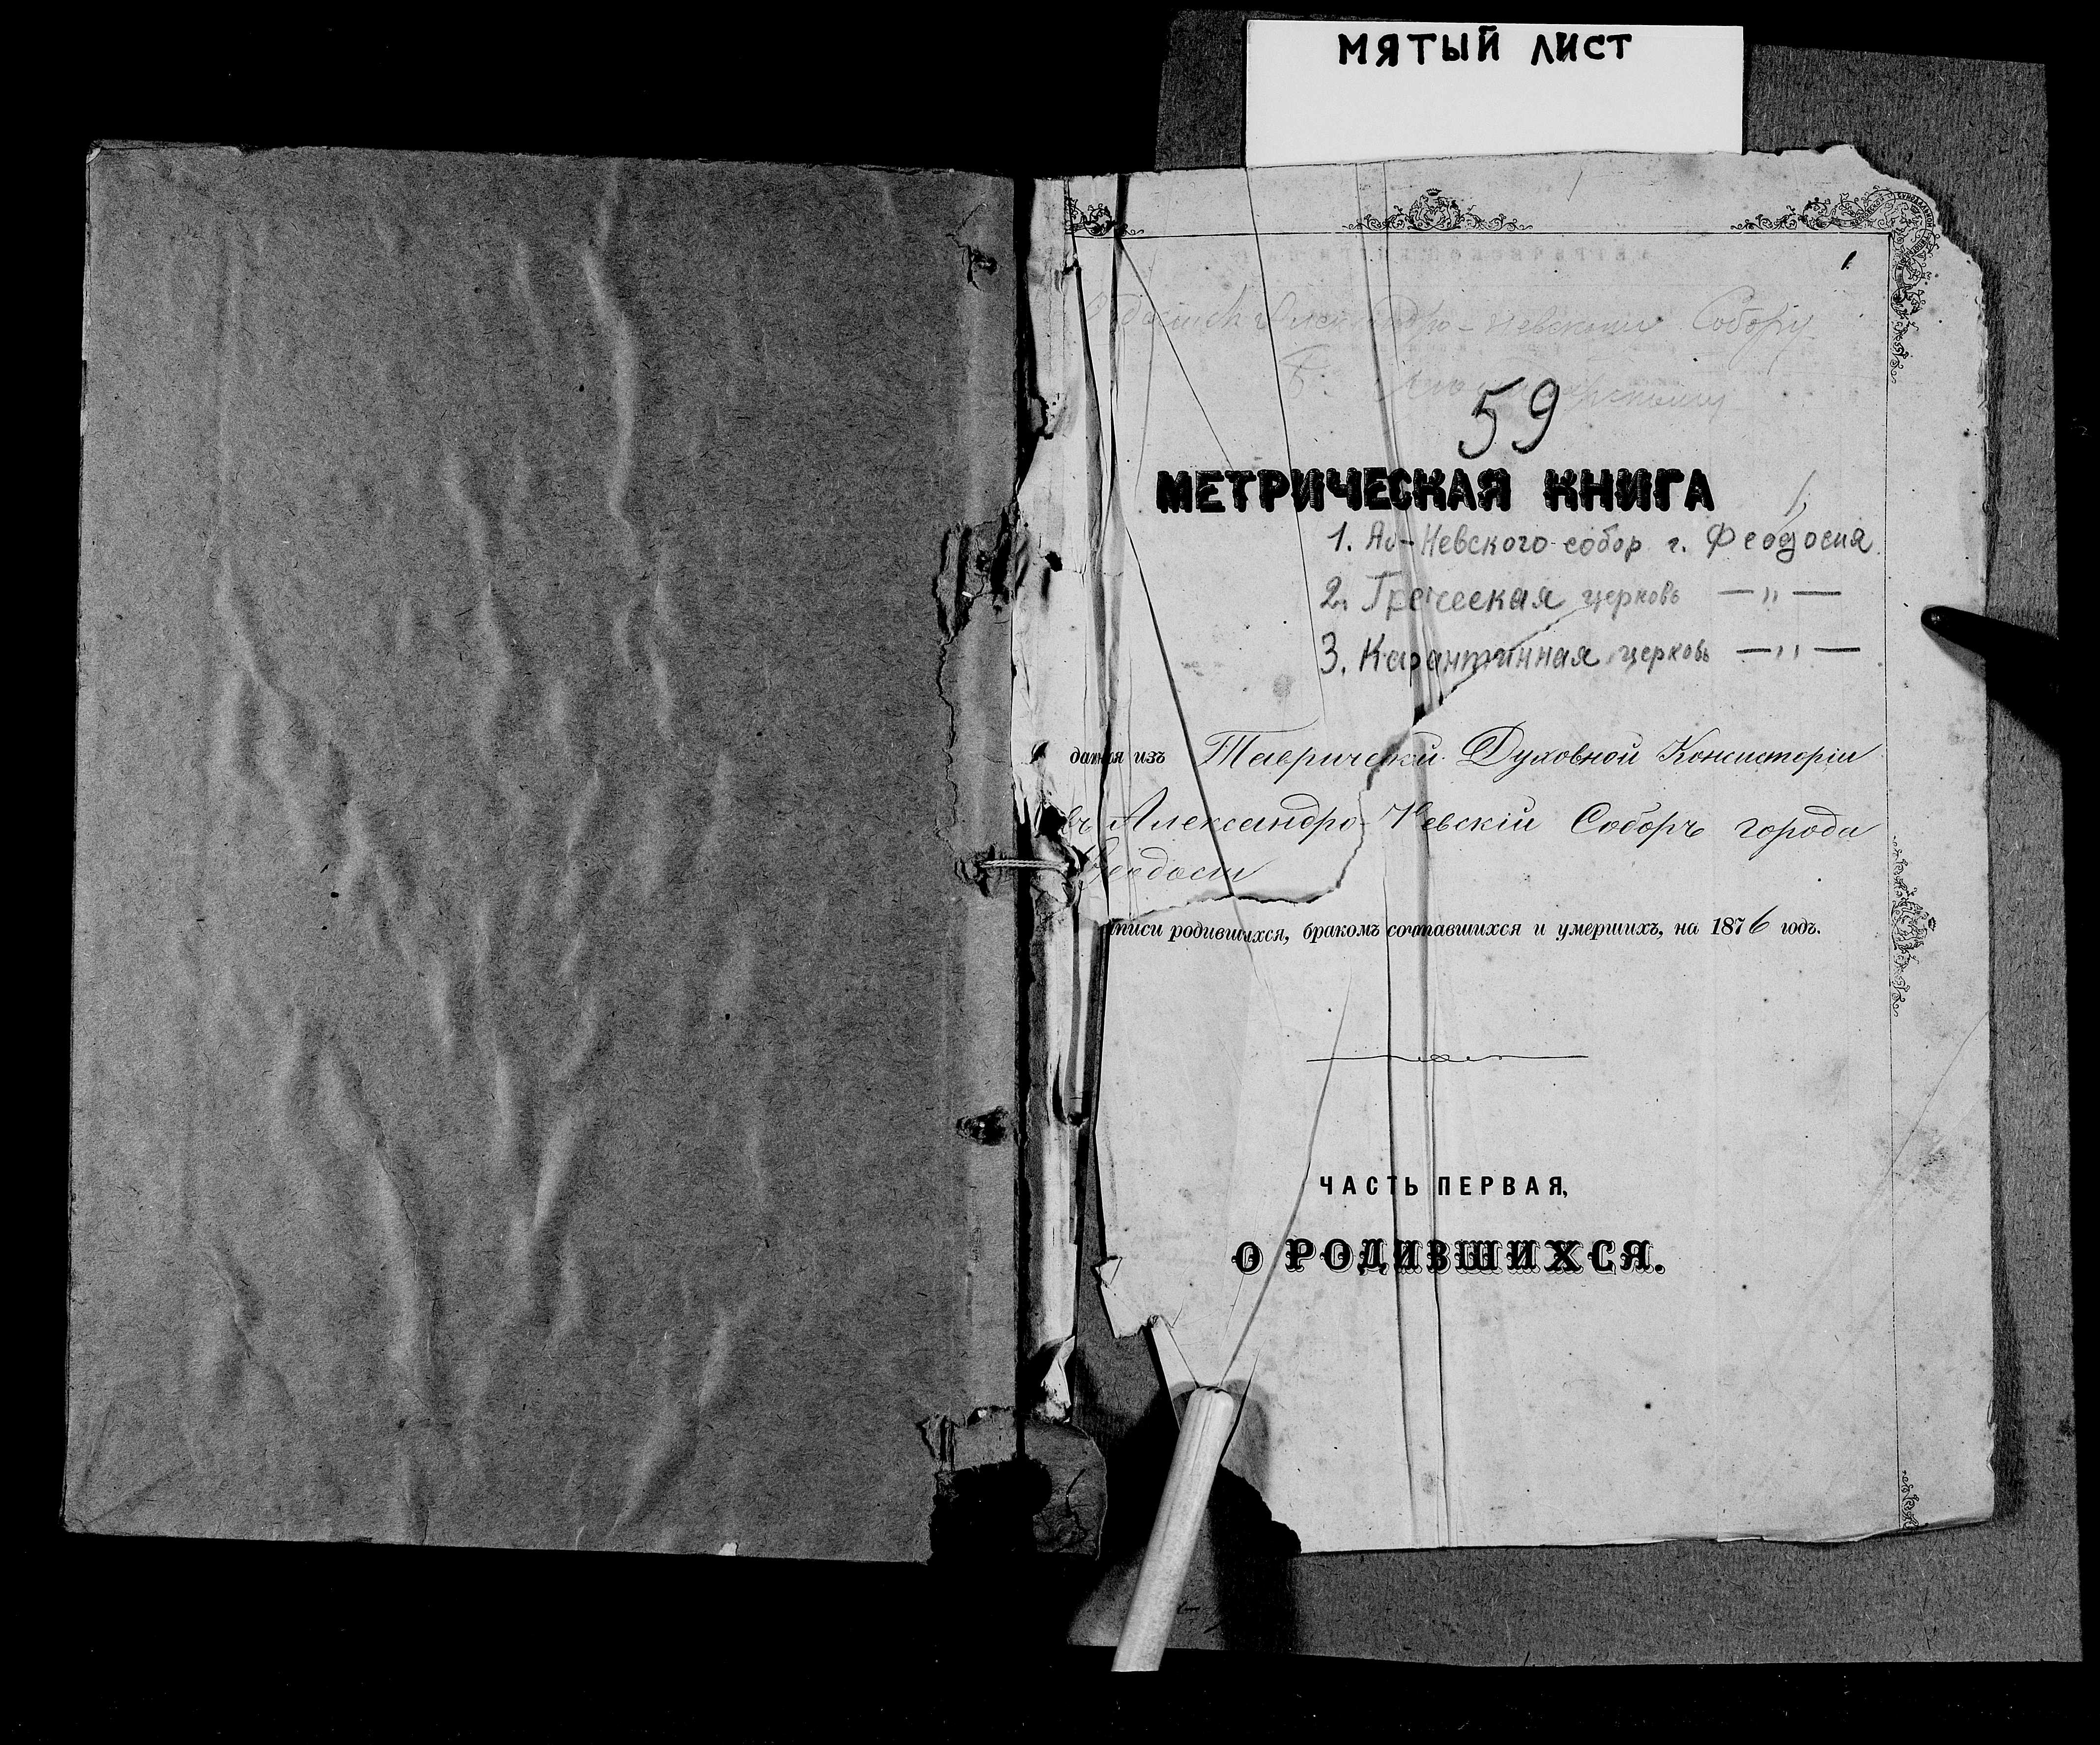 МЯТЫЙ ЛИСТ
1.
Александро-Невскому Собору
59
МЕТРИЧЕСКАЯ КНИГА
1. Ал-Невского собор г. Феодосия
2. Греческая церковь — " —
3. Карантинная церковь — " —
данная изъ Таврической Духовной Консисторіи
въ Александро-Невскій Соборъ города
Феодосіи
записи родившихся, бракомъ сочетавшихся и умершихъ, на 1876 годъ.
ЧАСТЬ ПЕРВАЯ,
О РОДИВШИХСЯ.